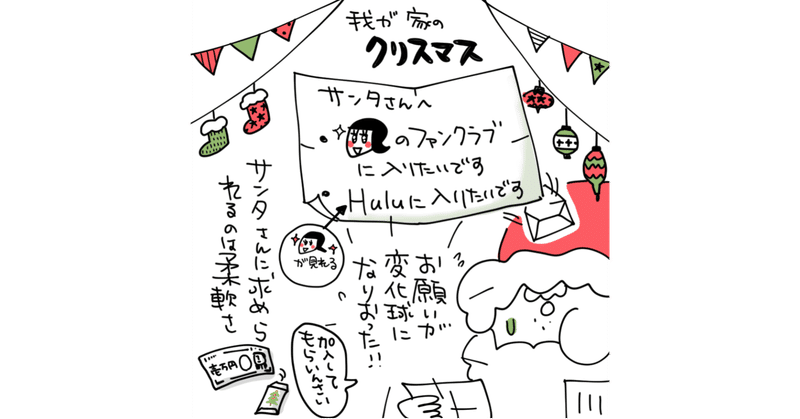 我が家の
クリスマス
サンタさんへ
・のファンクラブ
に入りたいです
・Huluに入りたいです
が見れる
お願いが
変化球に
なりおった!!
サンタさんに求めら
れるのは柔軟さ
加入して
もらいんさい
壱万円